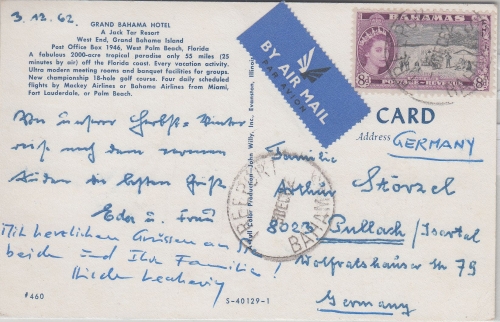 3.12.62.
GRAND BAHAMA HOTEL
A Jack Tar Resort
West End, Grand Bahama Island
Post Office Box 1946, West Palm Beach, Florida
A fabulous 2000-acre tropical paradise only 55 miles (25
minutes by air) off the Florida Coast. Every vacation activity.
Ultra modern meeting rooms and banquet facilities for groups.
New championship 18-hole golf course. Four daily scheduled
flights by Mackey Airlines or Bahama Airlines from Miami,
Fort Lauderdale, or Palm Beach.
Von unserer Herbst- Winter
reise nach dem warmen
Süden die besten Grüße
Eder u. Frau
Mit herzlichen Grüssen an Sie
beide und Ihre Familie!
Hilde
#460
S-40129-1
Color Production—John Willy, Inc., Evanston, Illinois
BY AIR MAIL
PAR AVION
BAHAMAS
8d 8d
FREEPORT
DEC 62
BAHAMAS
CARD
Address
GERMANY
Familie
Arthur Störzel
8023 Pullach/Isartal
Wolfratshauser Str 79
Germany